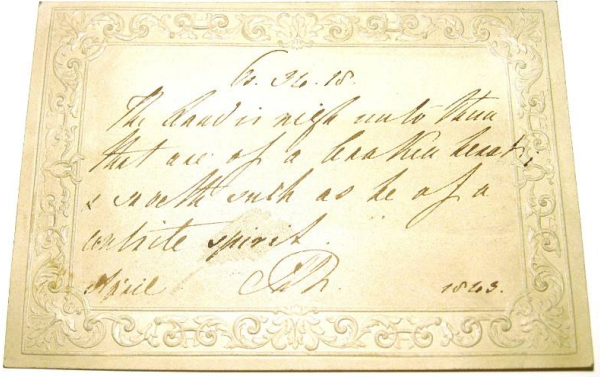 Ps. 34. 18.
The Lord is nigh unto them
that are of a broken heart;
& saveth such as be of a
contrite spirit.
April 1843.